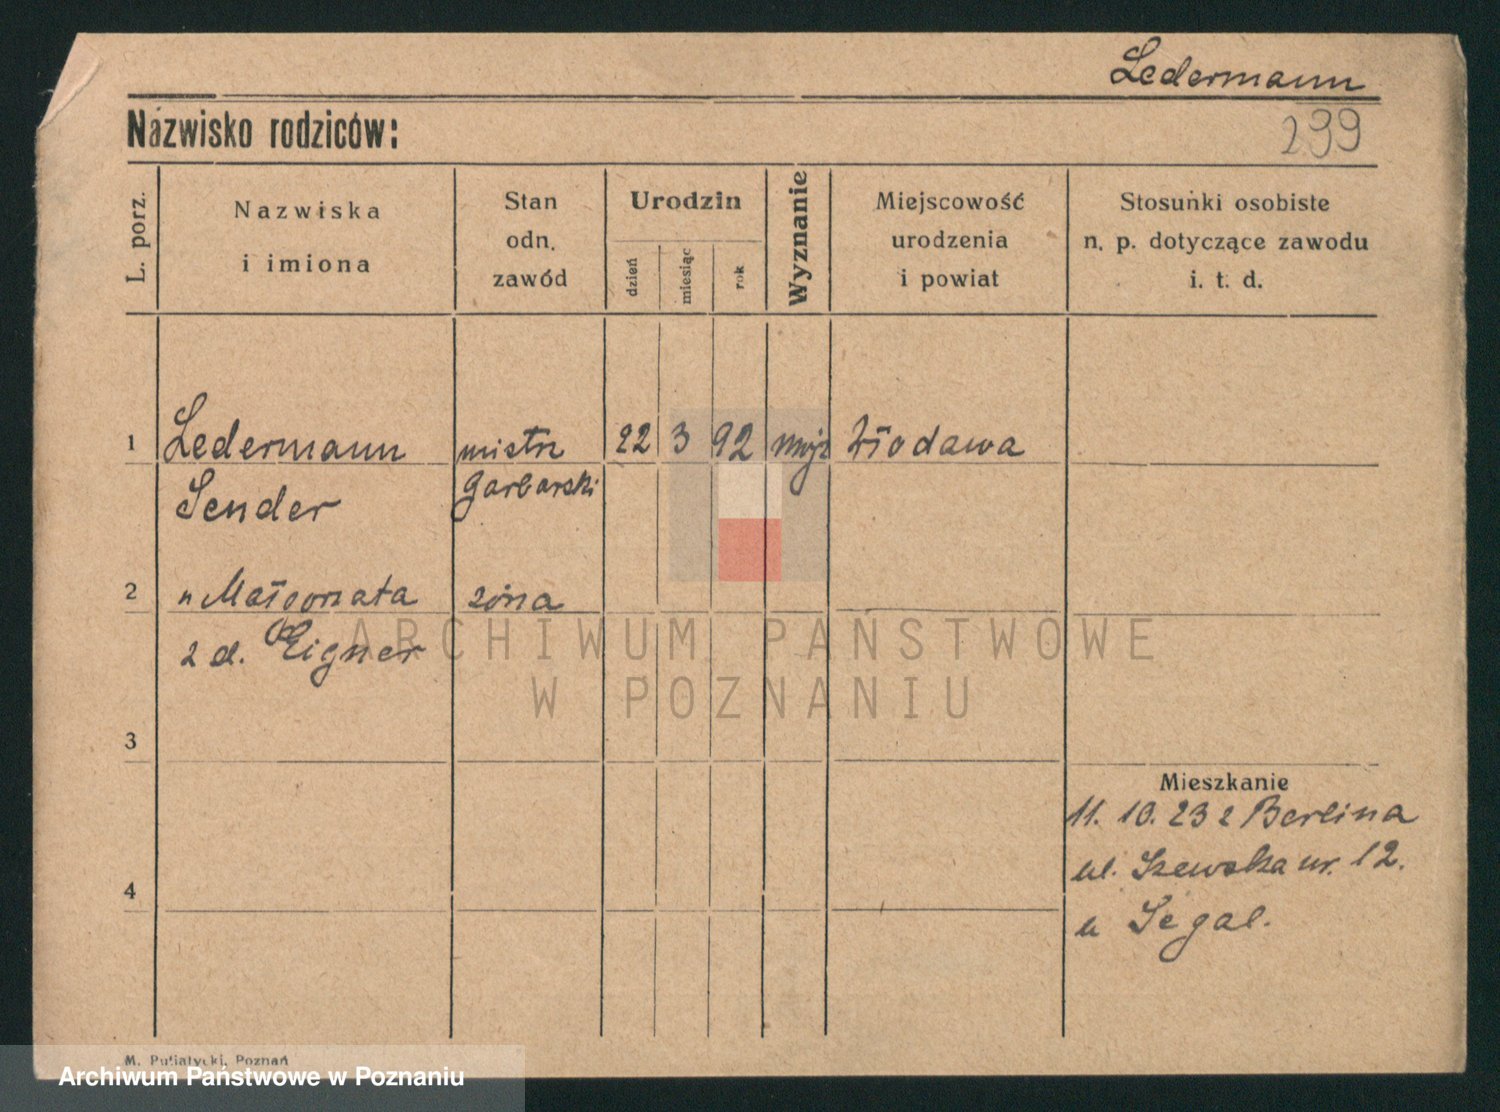 Ledermann
Nazwisko rodziców:
299
L. porz.
Nazwiska
i imiona
Stan
odn.
zawód
Urodzin
dzień
miesiąc
rok
Wyznanie
Miejscowość
urodzenia
i powiat
Stosunki osobiste
n. p. dotyczące zawodu
i. t. d.
1 Ledermann mistrz 22 3 92 mojż Włodawa
Sender garbarski
2 " Małgorzata żona
z d. Eigner
ARCHIWUM PAŃSTWOWE
W POZNANIU
3
Mieszkanie
11. 10. 23 z Berlina
ul. Szewska nr. 12.
u Segal.
4
M. Putiatycki, Poznań
Archiwum Państwowe w Poznaniu